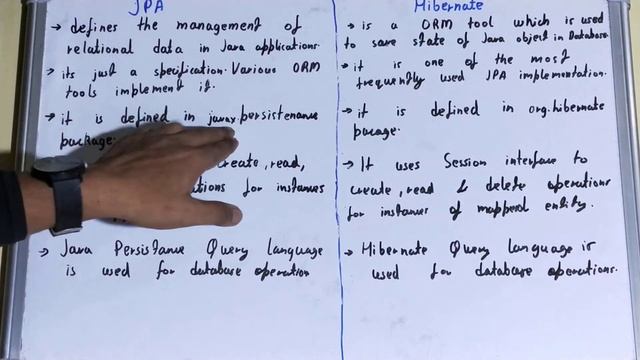 JPA
→ defines the management of
relational data in Java applications.
→ its just a specification. Various ORM
tools implement it.
→ it is defined in javax.persistenance
package.
create, read,
for instances
→ Java Persistance Query language
is used for database operation
Hibernate
→ is a ORM tool which is used
to save state of Java object in Database.
→ it is one of the most
frequently used JPA implementation.
→ it is defined in org.hibernate
pacage.
→ It uses Session interface to
create, read & delete operations
for instances of mapped entity.
→ Hibernate Query language is
used for database operations.